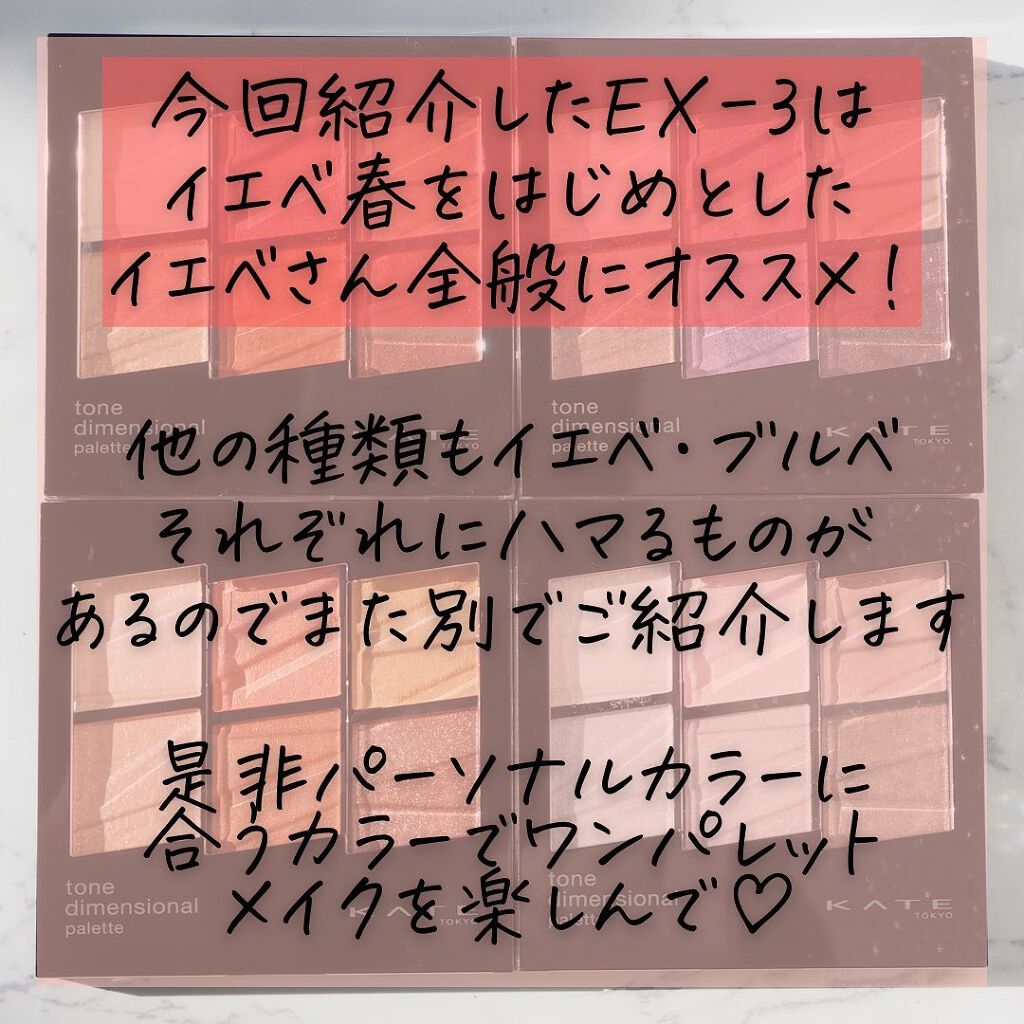 今回紹介したEX-3は
イエベ春をはじめとした
イエベさん全般にオススメ!
tone
dimensional
palette
KATE
TOKYO
tone
dimensional
palette
KATE
TOKYO
他の種類もイエベ・ブルベ
それぞれにハマるものが
あるのでまた別でご紹介します
是非パーソナルカラーに
合うカラーでワンパレット
メイクを楽しんで♡
tone
dimensional
palette
KATE
TOKYO
tone
dimensional
palette
KATE
TOKYO